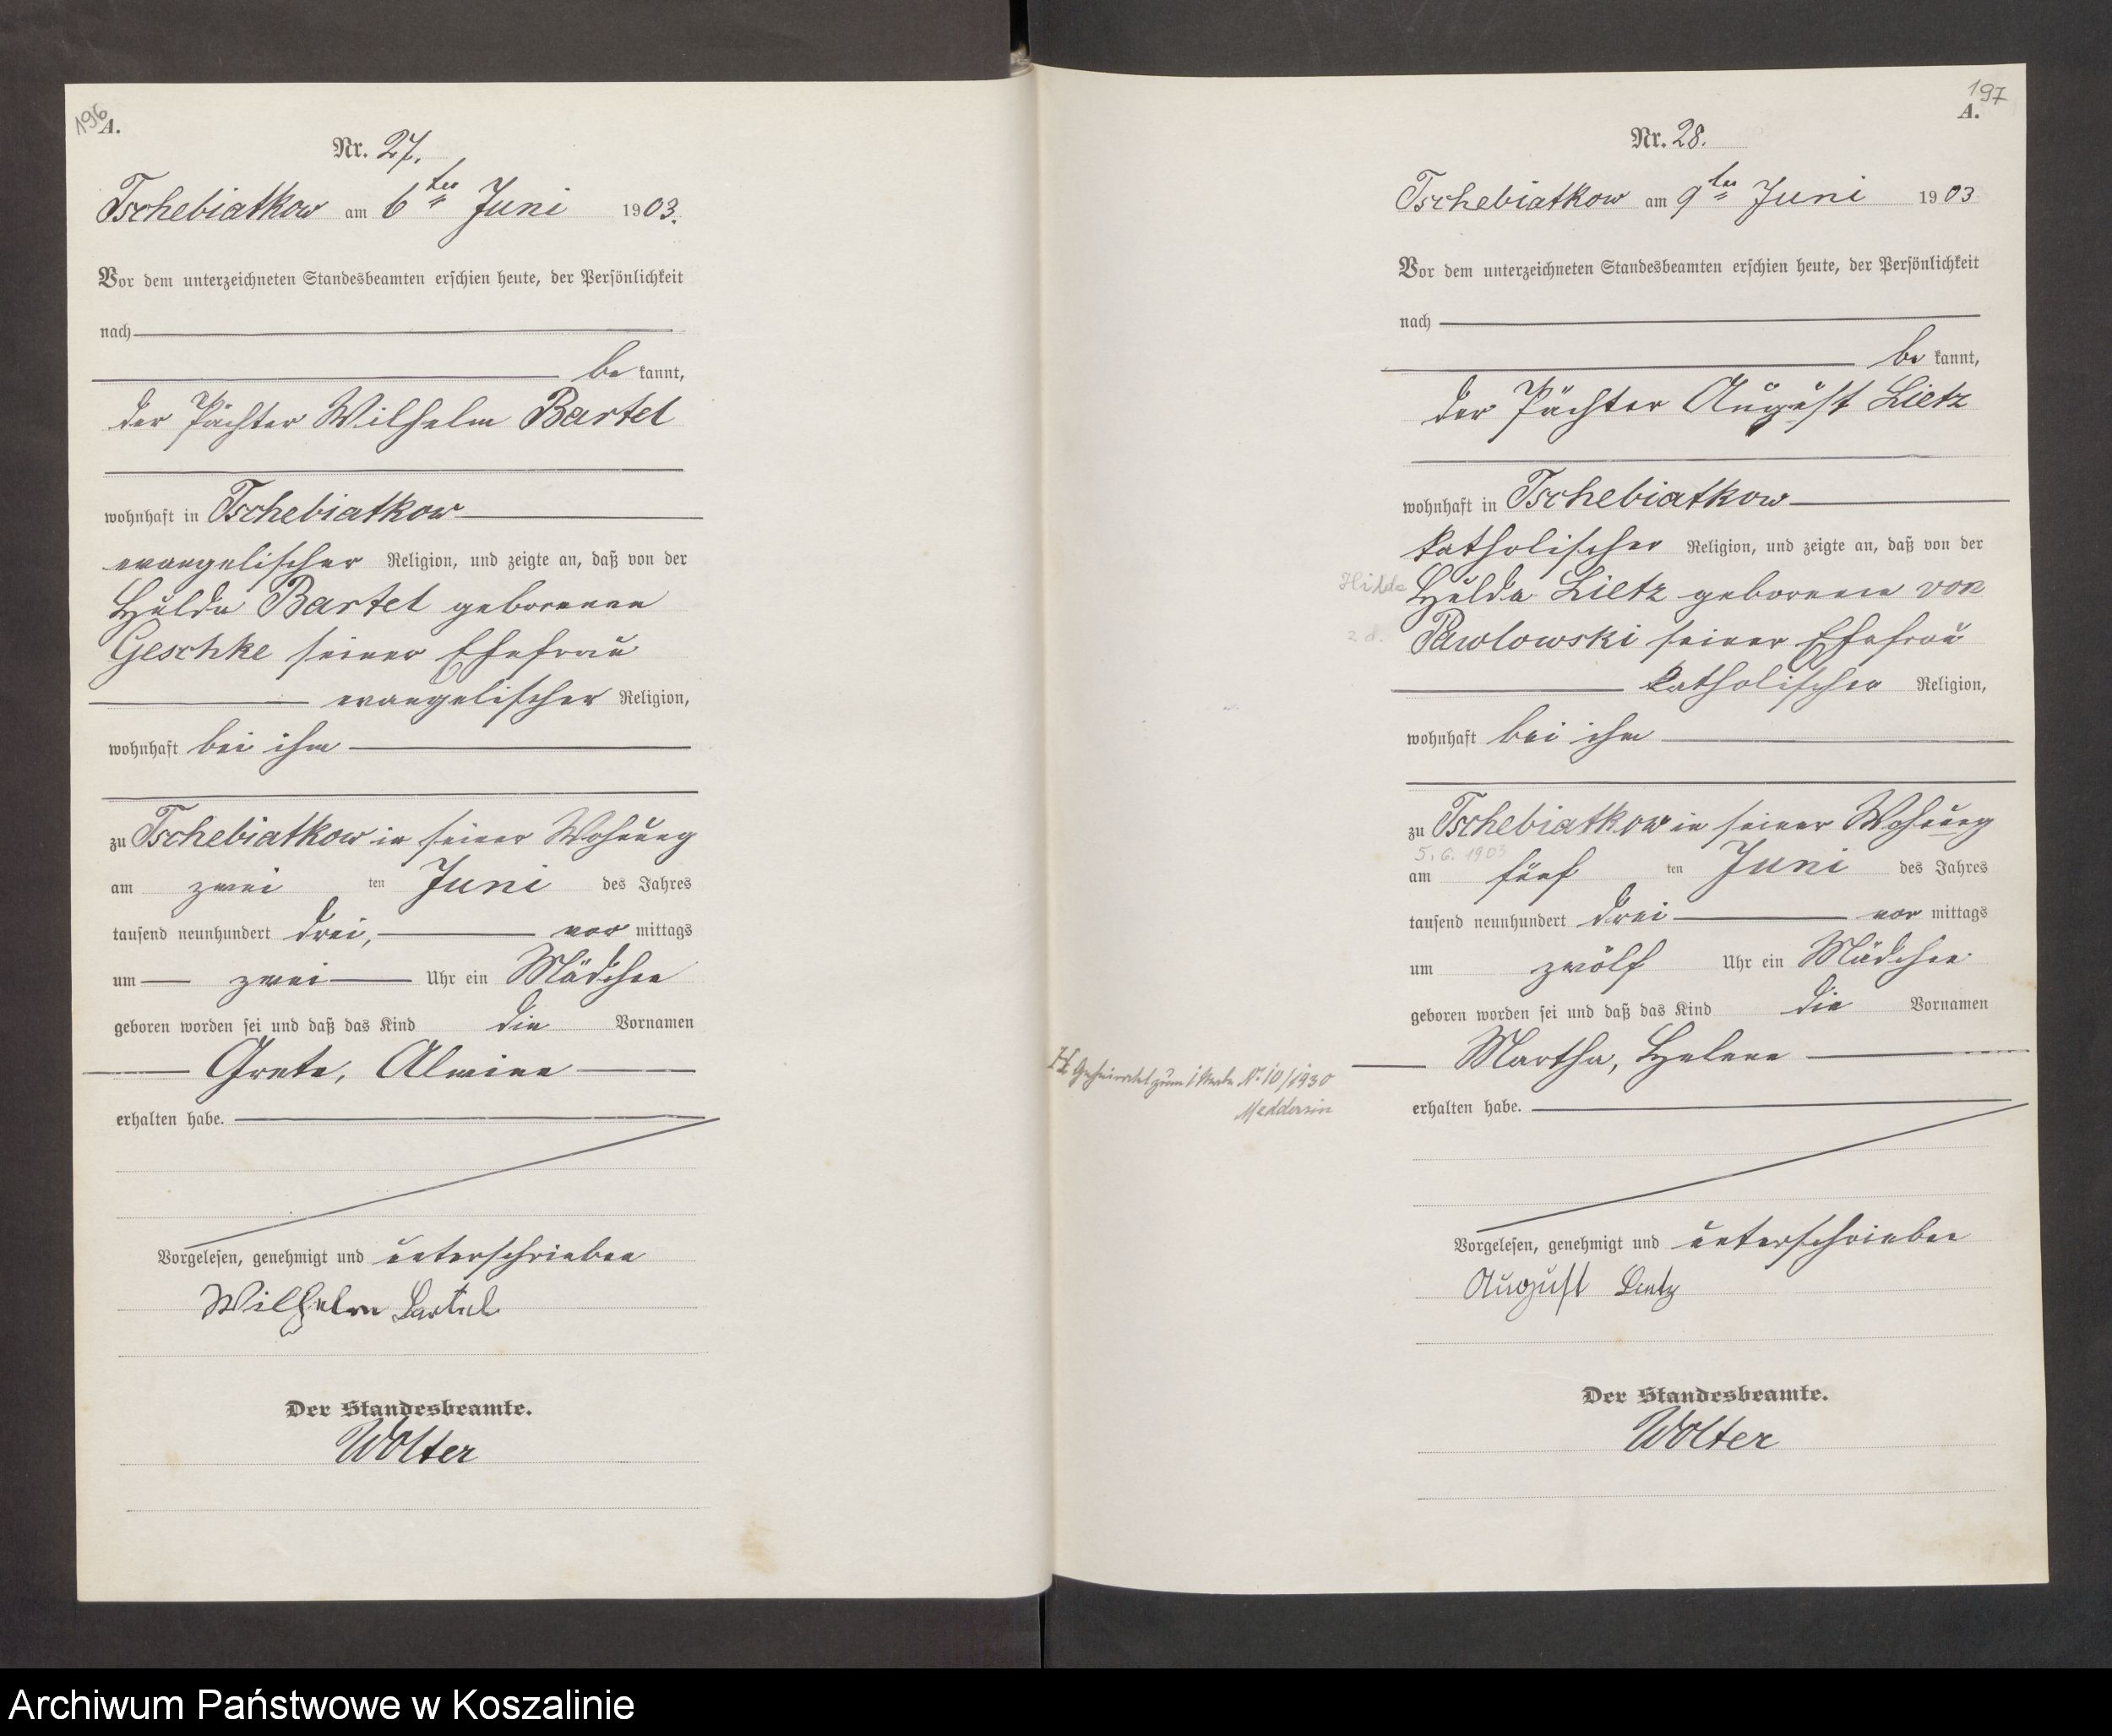 196
A.
Nr. 27.
Tschebiatkow am 6ten Juni 1903.
Vor dem unterzeichneten Standesbeamten erschien heute, der Persönlichkeit
nach
be kannt,
der Pächter Wilhelm Bartel
wohnhaft in Tschebiatkow
evangelischer Religion, und zeigte an, daß von der
Hulda Bartel geborenen
Geschke seiner Ehefrau
evangelischer Religion,
wohnhaft bei ihm
zu Tschebiatkow in seiner Wohnung
am zwei ten Juni des Jahres
tausend neunhundert drei, vor mittags
um zwei Uhr ein Mädchen
geboren worden sei und daß das Kind die Vornamen
Grete, Alwine
erhalten habe.
Vorgelesen, genehmigt und unterschrieben
Wilhelm Bartel
Der Standesbeamte.
Wolter
197
A.
Nr. 28.
Tschebiatkow am 9ten Juni 1903
Vor dem unterzeichneten Standesbeamten erschien heute, der Persönlichkeit
nach
be kannt,
der Pächter August Lietz
wohnhaft in Tschebiatkow
katholischer Religion, und zeigte an, daß von der
Hilda Hulda Lietz geborenen von
Pawlowski seiner Ehefrau
katholischer Religion,
wohnhaft bei ihm
zu Tschebiatkow in seiner Wohnung
5. 6. 1903
am fünf ten Juni des Jahres
tausend neunhundert drei vor mittags
um zwölf Uhr ein Mädchen
geboren worden sei und daß das Kind die Vornamen
Martha, Helene
H. Geheiratet zum 1 Male Nr 10/1930
Meddersin
erhalten habe.
Vorgelesen, genehmigt und unterschrieben
August Lietz
Der Standesbeamte.
Wolter
Archiwum Państwowe w Koszalinie